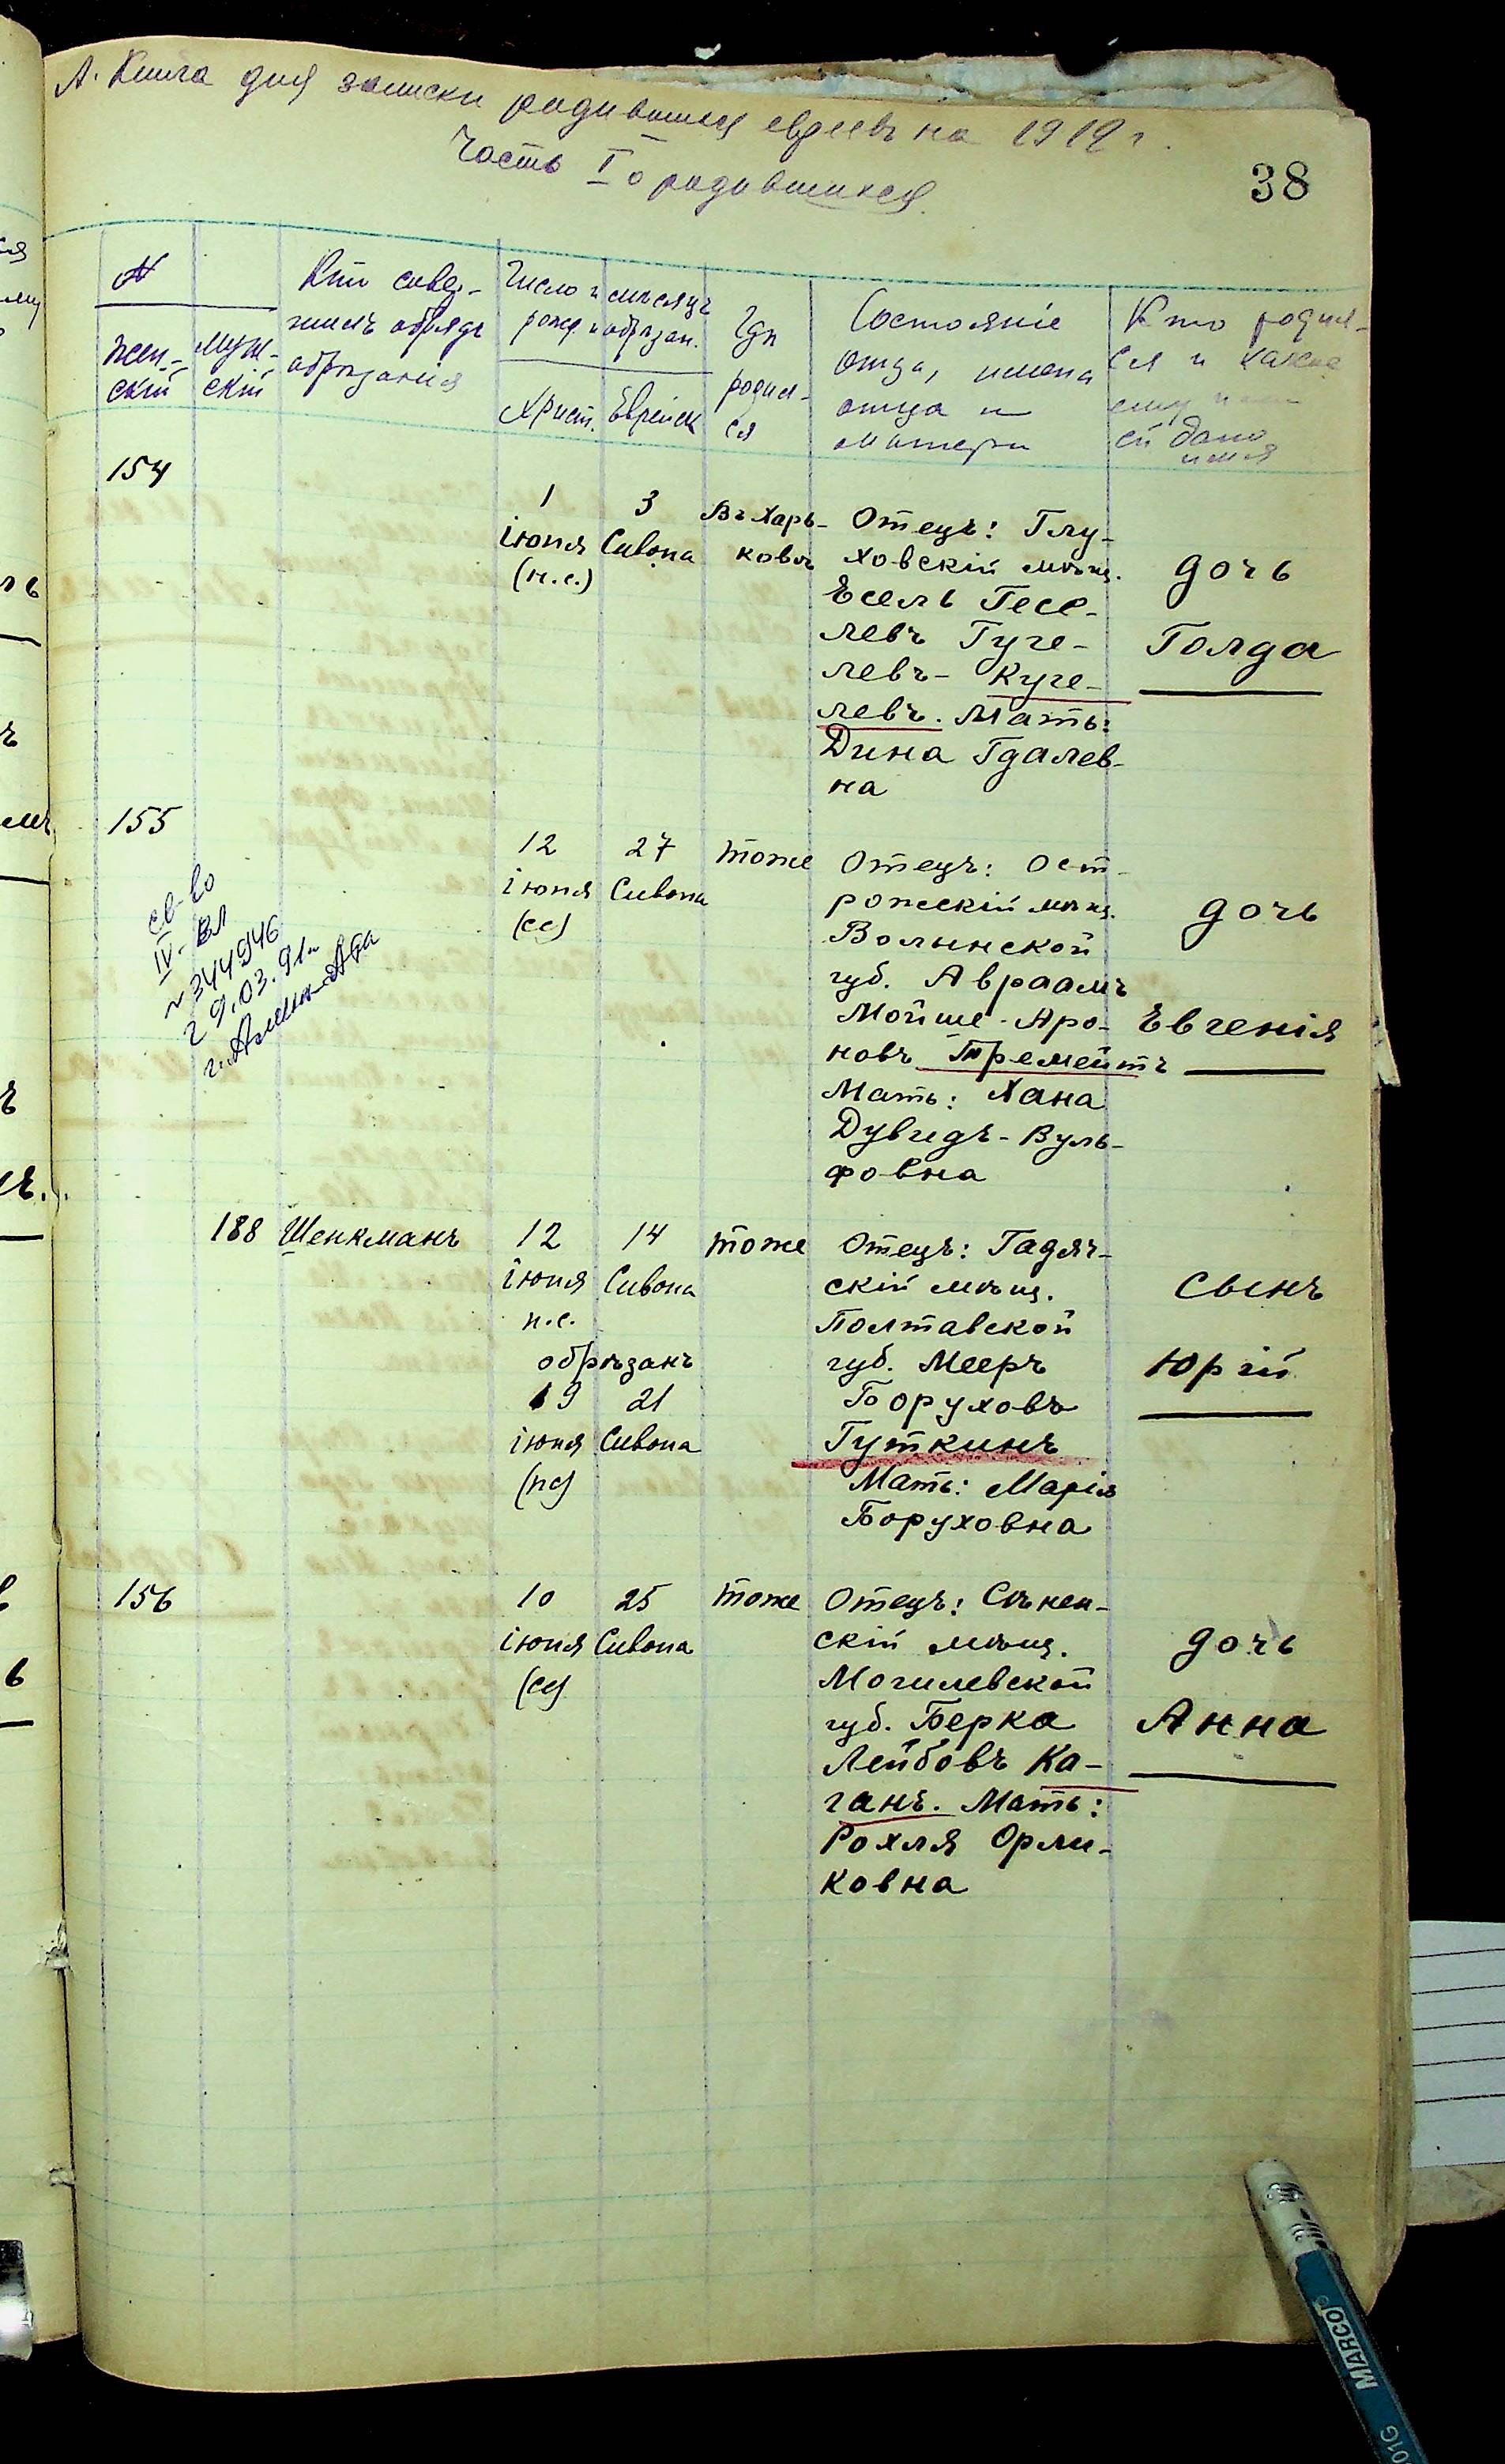 А. Книга для записки родившихся евреевъ на 1919 г.
Часть I о родившихся.
38
№
жен-
скій
муж-
скій
Кто совер-
шилъ обрядъ
обрѣзанія
Число и мѣсяцъ
рожд. и обрѣзан.
Христ.
Еврейск
Гдѣ
родил-
ся
Состояніе
отца, имена
отца и
матери
Кто родил-
ся и какое
ему или
ей дано
имя
154
1
іюня
(н.с.)
3
Сивона
Въ Харь-
ковѣ
Отецъ: Глу-
ховскій мѣщ.
Есель Гесе-
левъ Гуге-
левъ- Куге-
левъ. Мать:
Дина Гдалев-
на
дочь
Голда
155
св-во
IV-ВЛ
№344946
29.03.91г
г. Алма-Ата
12
іюня
(сс)
27
Сивона
тоже
Отецъ: Ост-
рожскій мѣщ.
Волынской
губ. Авраамъ
Мойше-Аро-
новъ Тремейтъ
Мать: Хана
Дувидъ-Вуль-
фовна
дочь
Евгенія
188
Шенкманъ
12
іюня
н.с.
14
Сивона
обрѣзанъ
19
іюня
(нс)
21
Сивона
тоже
Отецъ: Гадяч-
скій мѣщ.
Полтавской
губ. Мееръ
Боруховъ
Гуткинъ
Мать: Марія
Боруховна
сынъ
Юрій
156
10
іюня
(сс)
25
Сивона
тоже
Отецъ: Сѣнен-
скій мѣщ.
Могилевской
губ. Берка
Лейбовъ Ка-
ганъ. Мать:
Рохля Орли-
ковна
дочь
Анна
MARCO